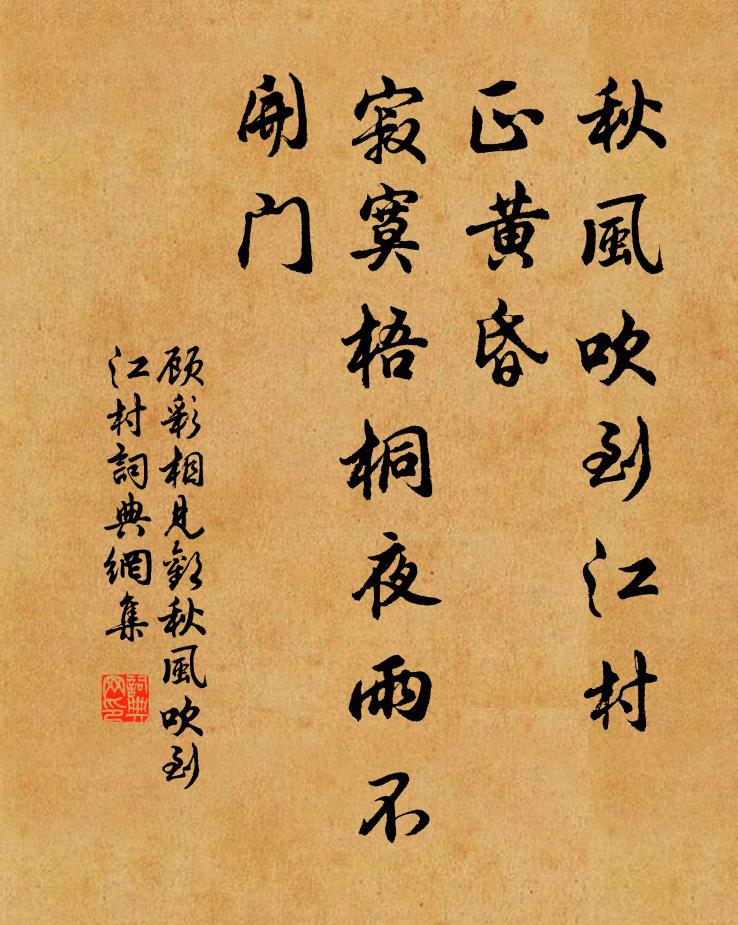 秋風吹到江村
正黄昏
寂寞梧桐夜雨不
開门
顾彩相見歡秋風吹到
江村詞典網集
詞典
网印